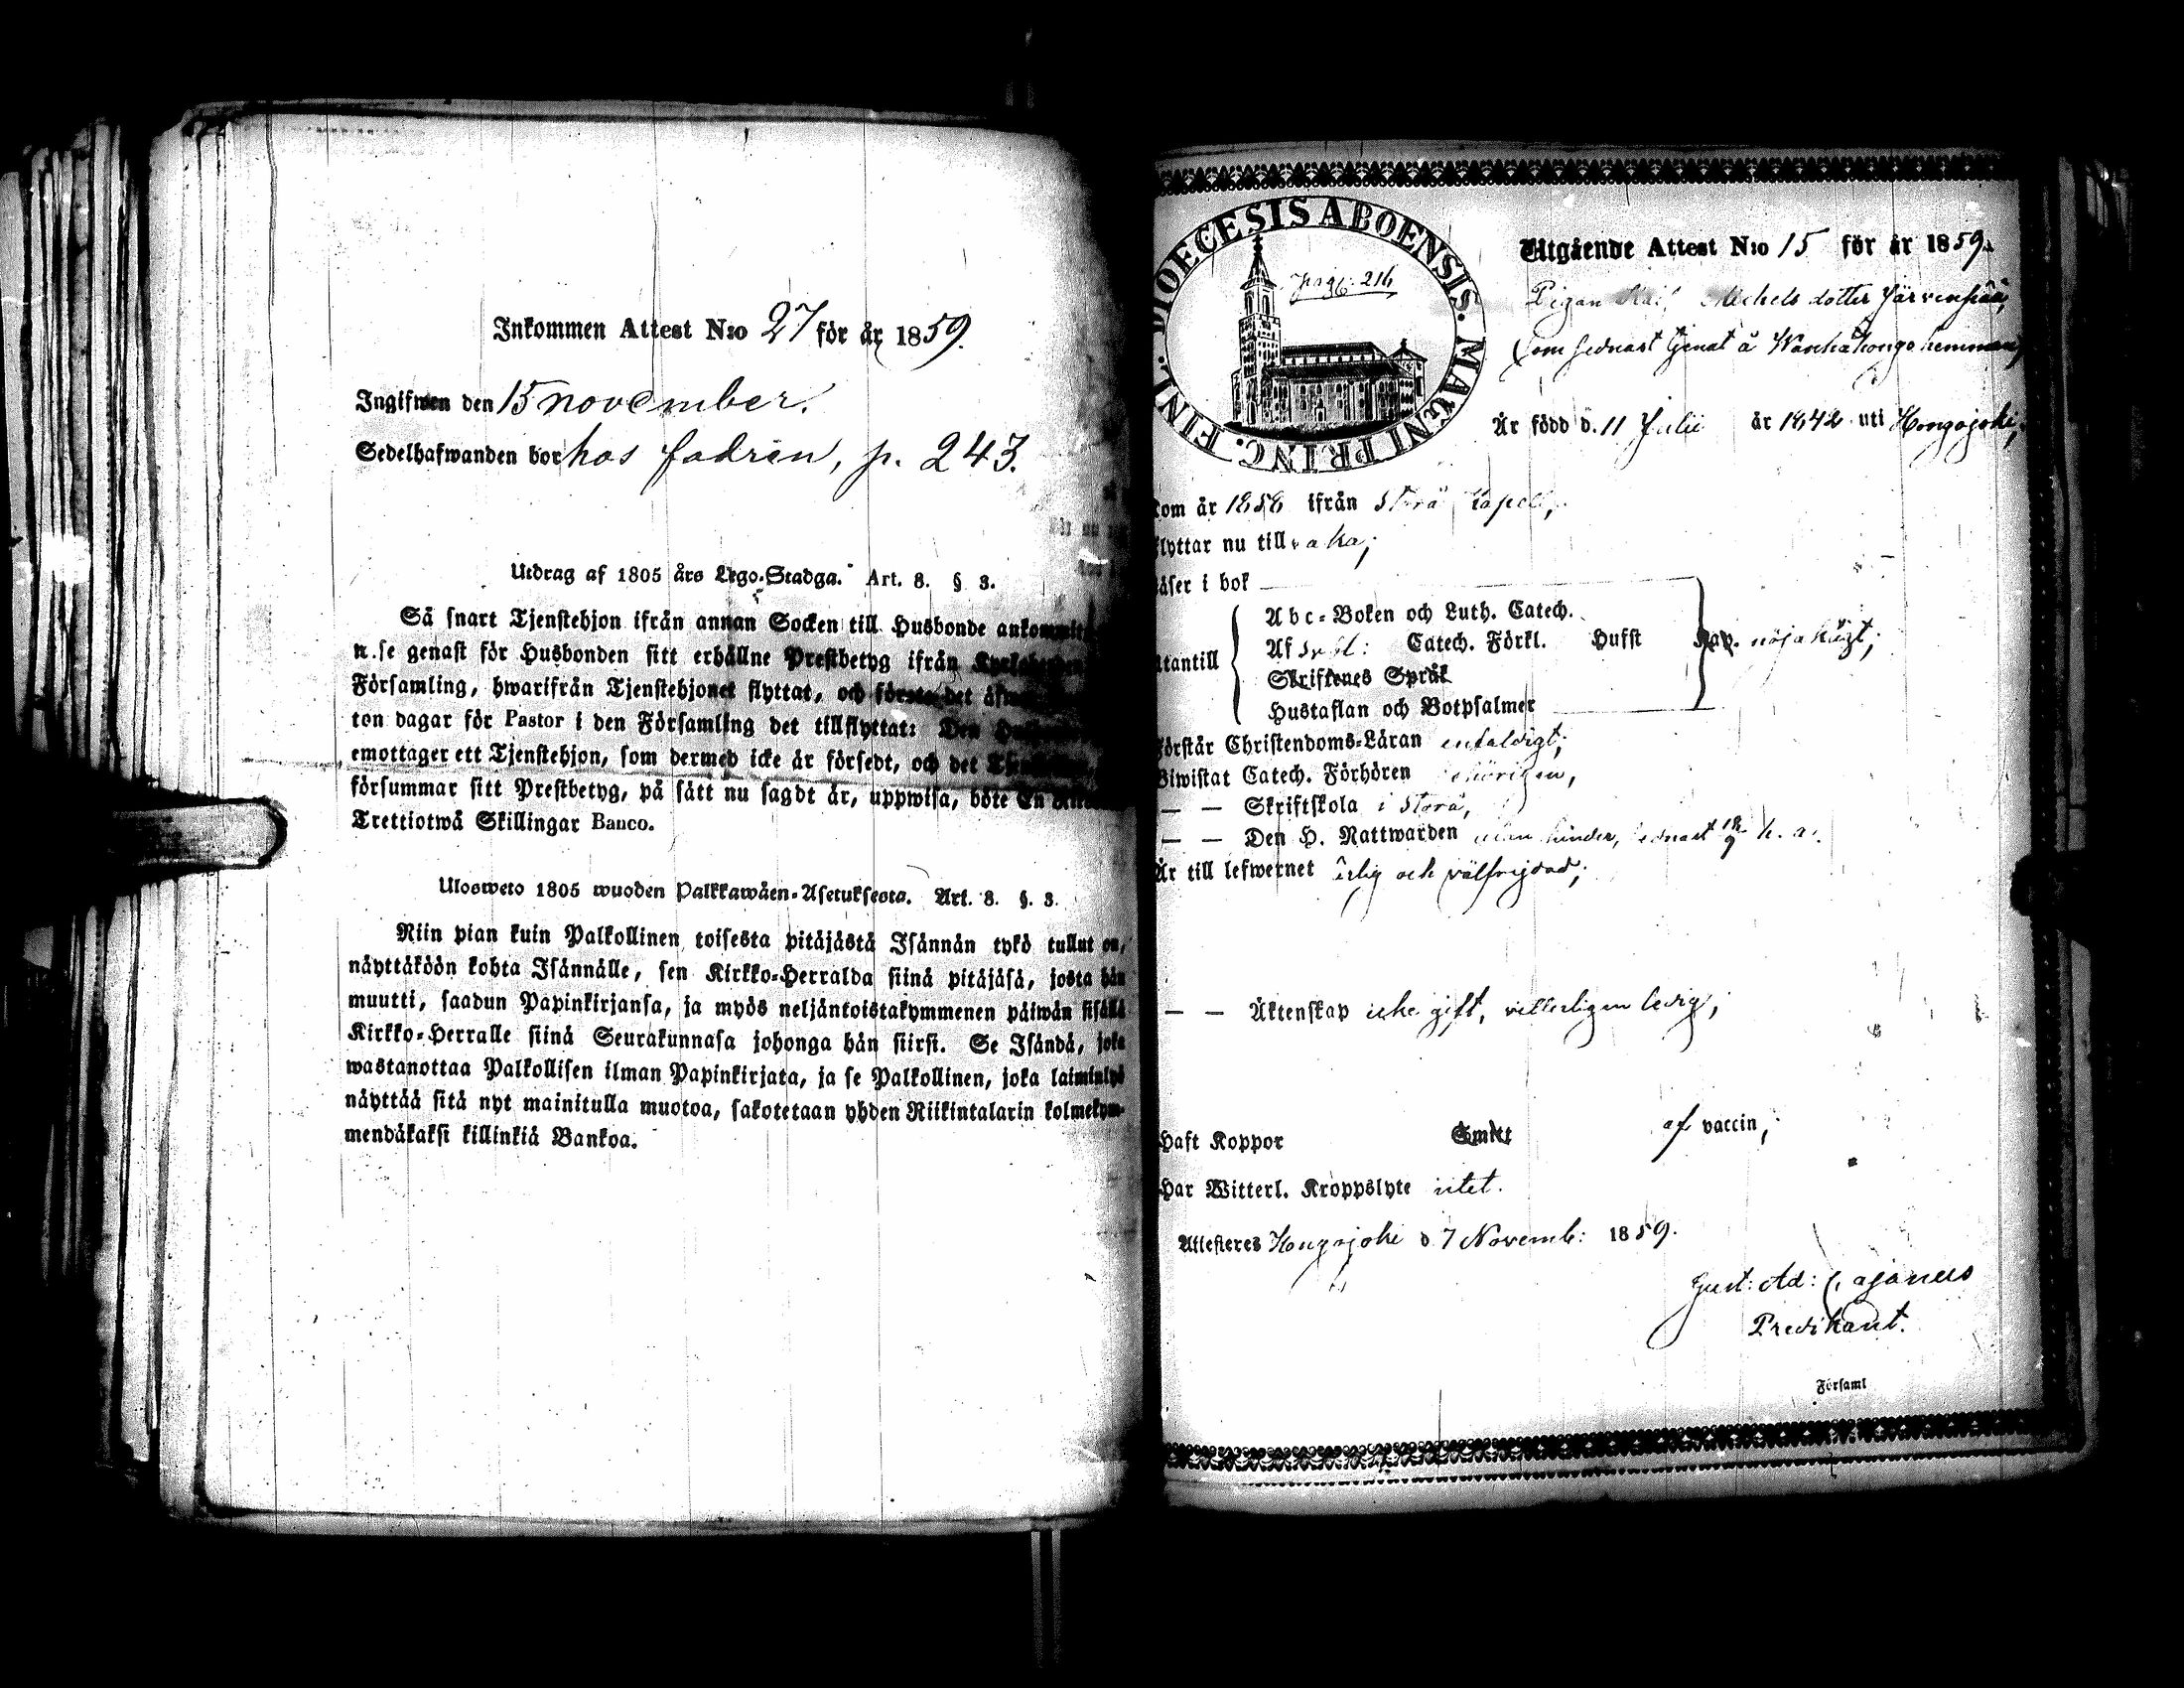 Inkommen Attest N:o 27 för år 1859.
Ingifwen den 15 november.
Sedelhafwanden bor hos fadren, p. 243.
Utdrag af 1805 års Lego-Stadga. Art. 8. § 3.
Så snart Tjenstehjon ifrån annan Socken till Husbonde
se genast för Husbonden sitt erhållne Prestbetyg ifrån
Församling, hwarifrån Tjenstehjonet flyttat, och det
ton dagar för Pastor i den Församling det tillflyttat: Den
emottager ett Tjenstehjon, som dermed icke är försedt, och det
försummar sitt Prestbetyg, på sätt nu sagdt är, uppwisa, böte En
Trettiotwå Skillingar Banco.
Ulosweto 1805 wuoden Palkkawäen-Asetuksesta. Art. 8. §. 3.
Niin pian kuin Palkollinen toisesta pitäjästä Isännän tykö tullut on,
näyttäköön kohta Isännälle, sen Kirkko-Herralda siinä pitäjäsä, josta hän
muutti, saadun Papinkirjansa, ja myös neljäntoistakymmenen päiwän sisällä
Kirkko-Herralle siinä Seurakunnasa johonga hän siirsi. Se Isändä, joka
wastanottaa Palkollisen ilman Papinkirjata, ja se Palkollinen, joka laiminlyö
näyttää sitä nyt mainitulla muotoa, sakotetaan yhden Riikintalarin kolmekym-
mendäkaksi killinkiä Bankoa.
FINL. DIOECESIS ABOENSIS. MAGNI PRINC.
pag: 216
Utgående Attest N:o 15 för år 1859.
Pigan Michelsdotter Järvenpää,
som sednast tjenat å hemman,
Är född d. 11 Julii år 1842 uti Hongojoki,
kom år 1858 ifrån Storå Kapell,
flyttar nu till baka;
Läser i bok
Utantill
Abc-Boken och Luth. Catech.
Af Catech. Förkl. Hufst Kap. nöjaktigt;
Skriftenes Språk
Hustaflan och Botpsalmer
Förstår Christendoms-Läran enfaldigt;
Biwistat Catech. Förhören behörigen,
— — Skriftskola i Storå,
— — Den H. Nattwarden utan hinder, sednast 18/9 h. a.
Är till lefwernet ärlig och välfrejdad;
— — Äktenskap icke gift, vitterligen ledig;
Haft Koppor Smitt af vaccin,
Har Witterl. Kroppslyte intet.
Attesteres Hongojoki d 7 Novemb: 1859.
Gust: Ad: Cajanus
Predikant.
Församl